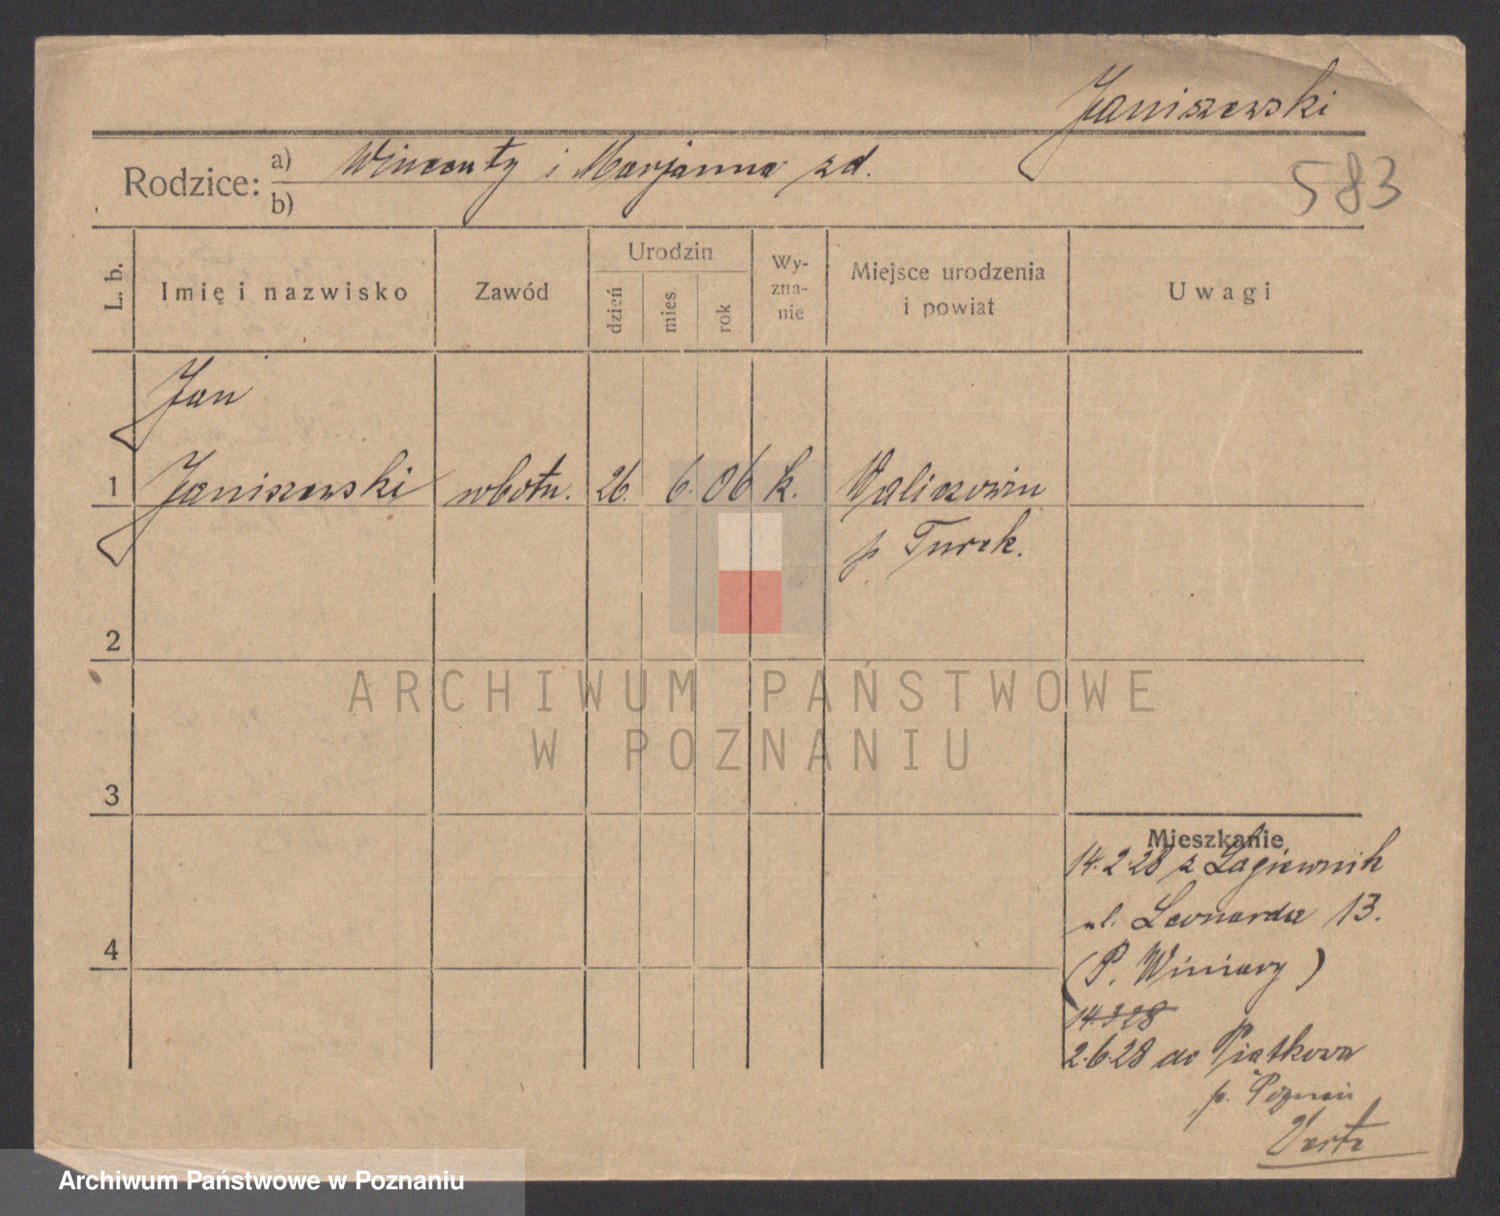 Janiszewski
583
Rodzice: a) Wincenty i Marjanna zd.
b)
L. b.
Imię i nazwisko
Zawód
Urodzin
dzień
mies
rok
Wy-
zna-
nie
Miejsce urodzenia
i powiat
Uwagi
Jan
1 Janiszewski robotn. 26. 6. 06 k.
p. Turek.
2
ARCHIWUM PAŃSTWOWE
W POZNANIU
3
Mieszkanie
14.2.28 z Łagiewnik
ul. Leonarda 13.
4
(P. Winiary)
14.3.28
2.6.28 do Piątkowa
p. Poznań
Verte
Archiwum Państwowe w Poznaniu